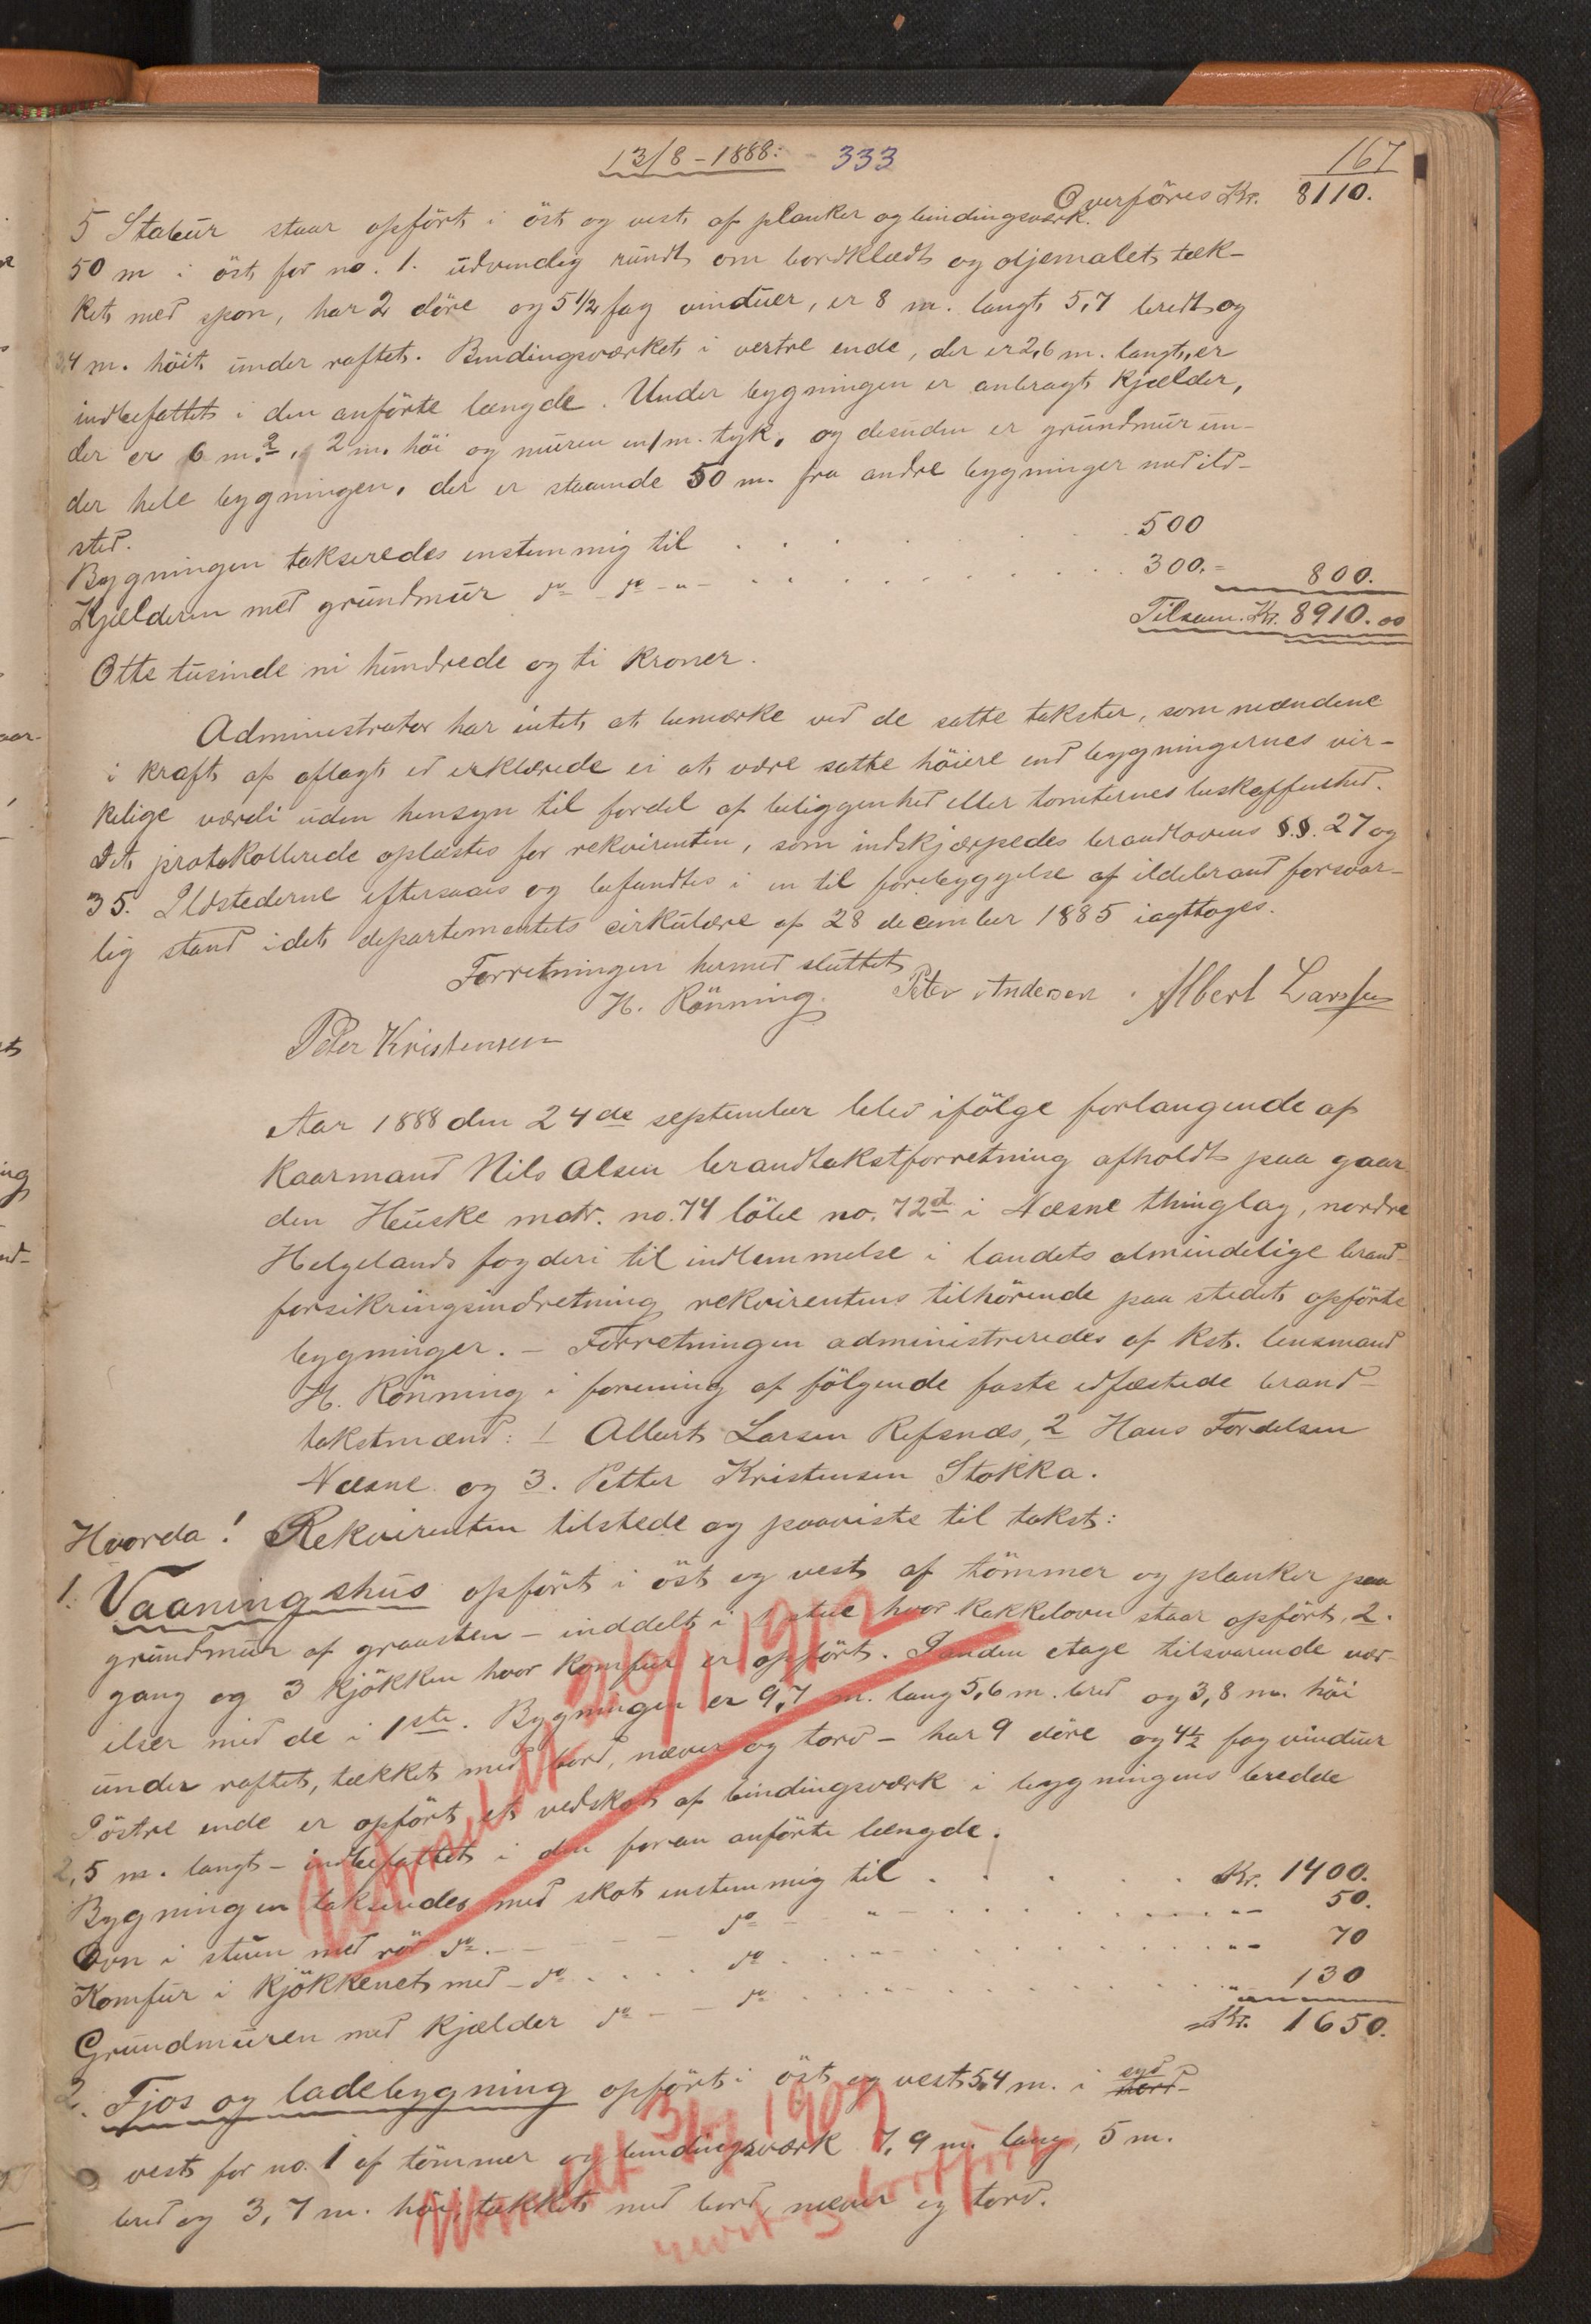 13/8-1888: - 333
167
Overføres Kr. 8110.
5 Stabur staar opført i øst og vest af planker og bindingsværk.
50 m i øst for no. 1. udvendig rundt om bordklædt og oljemalet tæk-
ket med spon, har 2 døre og 5 1/2 fag vinduer, er 8 m. langt 5,7 bredt og
3,4 m. høit under raftet. Bindingsværket i vestre ende, der er 2,6 m. langt, er
indbefattet i den anførte længde. Under bygningen er anbragt kjælder,
der er 6 m.2, 2 m. høi og muren en 1 m. tyk, og desuden er grundmur un-
der hele bygningen, der er staaende 50 m. fra andre bygninger med ild-
sted.
Bygningen takseredes enstemmig til . . . . . . . . 500
Kjælderen med grundmur do - do - " - . . . . . . . . 300.= 800.
Tilsam. Kr. 8910.00
Otte tusinde ni hundrede og ti kroner.
Administrator har intet at bemærke ved de satte takster, som mændene
i kraft af aflagt ed erklærede ei at være satte høiere end bygningernes vir-
kelige værdi uden hensyn til fordel af beliggenhed eller tomternes beskaffenhed.
Det protokollerede oplæstes for rekvirenten, som indskjærpedes brandlovens §.§. 27 og
35. Ildstederne eftersaaes og befandtes i en til forebyggelse af ildebrand forsvar-
lig stand idet departementets cirkulære af 28 december 1885 iagttoges.
Forretningen hermed sluttet
H. Rønning. Peter Andersen. Albert Larssen
Peter Kristensen
Aar 1888 den 24de september blev ifølge forlangende af
Kaarmand Nils Olsen brandtakstforretning afholdt paa gaar
den Heuske matr. no. 74 løbe no. 72d i Næsne thinglag, nordre
Helgelands fogderi til indlemmelse i landets almindelige brand-
forsikringsindretning rekvirentens tilhørende paa stedet opførte
bygninger. - Forretningen administreredes af kst. lensmand
H. Rønning i forening af følgende faste edfæstede brand-
takstmænd: 1 Albert Larsen Refsnæs, 2 Hans Fordelsen
Næsne og 3. Petter Kristensen Stokka.
Hvorda! Rekvirenten tilstede og paaviste til takst:
1. Vaaningshus opført i øst og vest af tømmer og planker paa
grundmur af graasten - inddelt i 1 stue hvor kakkelovn staar opført, 2.
gang og 3 kjøkken hvor komfur er opført. I anden etage tilsvarende vær-
elser med de i 1ste. Bygningen er 9,7 m. lang 5,6 m. bred og 3,8 m. høi
under raftet, tækket med bord, næver og torv - har 9 døre og 4 1/2 fag vinduer
I østre ende er opført et vedskot af bindingsværk i bygningens bredde
2,5 m. langt - indbefattet i den foran anførte længde.
Bygningen takseredes med skot enstemmig til . . . . . Kr. 1400.
Ovn i stuen med rør do. - - - - do - " - . . . . . . . " - 50.
Komfur i kjøkkenet med - do . . . . do . . . " . . . . . . . " - 70
Grundmuren med kjælder do - - do . . . . . . . . . " 130
Kr. 1650.
2. Fjos og ladebygning opført i øst og vest 54 m. i syd nord-
vest for no. 1 af tømmer og bindingsværk 7,9 m. lang, 5 m.
bred og 3,7 m. høi, tækket med bord, næver og torv.
Udmeldt 1912
Udmeldt 1907
revet og bortført